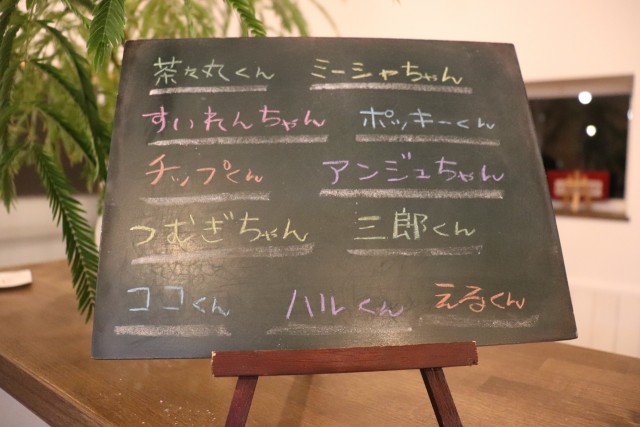 茶々丸くん ミーシャちゃん
すいれんちゃん ポッキーくん
チップくん アンジュちゃん
つむぎちゃん 三郎くん
ココくん ハルくん えるくん